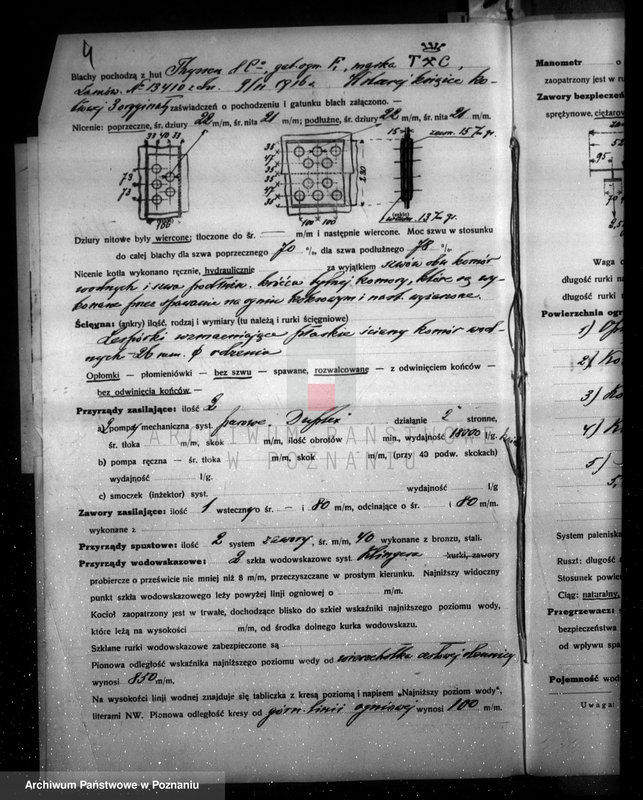 4
Blachy pochodzą z hut Thyssen & Co, gat. ogn. F1, marka T C,
Zamów. № 13410 z dn. 9/II 1916 r.
3 oryginały zaświadczeń o pochodzeniu i gatunku blach załączono. —
Nicenie: poprzeczne, śr. dziury 22 m/m, śr. nita 21 m/m; podłużne, śr. dziury 22 m/m, śr. nita 21 m/m.
33 40 33
73
73
100
35
47
35
35
47
35
100 100
230
15
zewn. 15 7
wewn. 13 7
Dziury nitowe były wiercone; tłoczone do śr. m/m i następnie wiercone. Moc szwu w stosunku
do całej blachy dla szwu poprzecznego 70 %, dla szwu podłużnego 78 %.
Nicenie kotła wykonano ręcznie, hydraulicznie za wyjątkiem szwów obu komór
wodnych i szwa podłużn. króćca tylnej komory, które są wy-
konane przez spawanie na ogniu koksowym i nast. wyżarzone.
Ścięgna: (ankry) ilość, rodzaj i wymiary (tu należą i rurki ścięgniowe)
Zespórki wzmacniające płaskie ściany komór wod-
nych - 26 mm. ϕ rdzenia
Opłomki — płomieniówki — bez szwu — spawane, rozwalcowane — z odwinięciem końców —
bez odwinięcia końców —
Przyrządy zasilające: ilość 2
a) 2 pompy mechaniczna syst. parowe, Duplex działanie 2 stronne,
śr. tłoka m/m, skok m/m, ilość obrotów min., wydajność 18000 l/g.
b) pompa ręczna — śr. tłoka m/m, skok m/m, (przy 40 podw. skokach)
wydajność l/g.
c) smoczek (inżektor) syst. wydajność l/g
Zawory zasilające: ilość 1 wsteczny o śr. — i 80 m/m, odcinające o śr. i 80 m/m.
wykonane z
Przyrządy spustowe: ilość 2 system zawory, śr. m/m, 40 wykonane z bronzu, stali.
Przyrządy wodowskazowe: 2 szkła wodowskazowe syst. Klingera kurki, zawory
probiercze o prześwicie nie mniej niż 8 m/m, przeczyszczane w prostym kierunku. Najniższy widoczny
punkt szkła wodowskazowego leży powyżej linji ogniowej o m/m.
Kocioł zaopatrzony jest w trwałe, dochodzące blisko do szkieł wskaźniki najniższego poziomu wody,
które leżą na wysokości m/m, od środka dolnego kurka wodowskazu.
Szklane rurki wodowskazowe zabezpieczone są
Pionowa odległość wskaźnika najniższego poziomu wody od wierzchołka
wynosi 850 m/m.
Na wysokości linji wodnej znajduje się tabliczka z kresą poziomą i napisem „Najniższy poziom wody",
literami NW. Pionowa odległość kresy od górn. linii ogniowej wynosi 100 m/m.
Manometr o
zaopatrzony jest w ru
Zawory bezpieczeń
sprężynowe, ciężarow
95
Waga c
długość rurki na
długość rurki
Powierzchnia ogr
1)
2) Ko
3) Ko
4)
5)
System paleniska
Ruszt: długość
Stosunek powie
Ciąg: naturalny,
Przegrzewacz: s
bezpieczeństwa
od wpływu spa
Pojemność wod
Uwaga:
ARCHIWUM PAŃSTWOWE
W POZNANIU
Archiwum Państwowe w Poznaniu